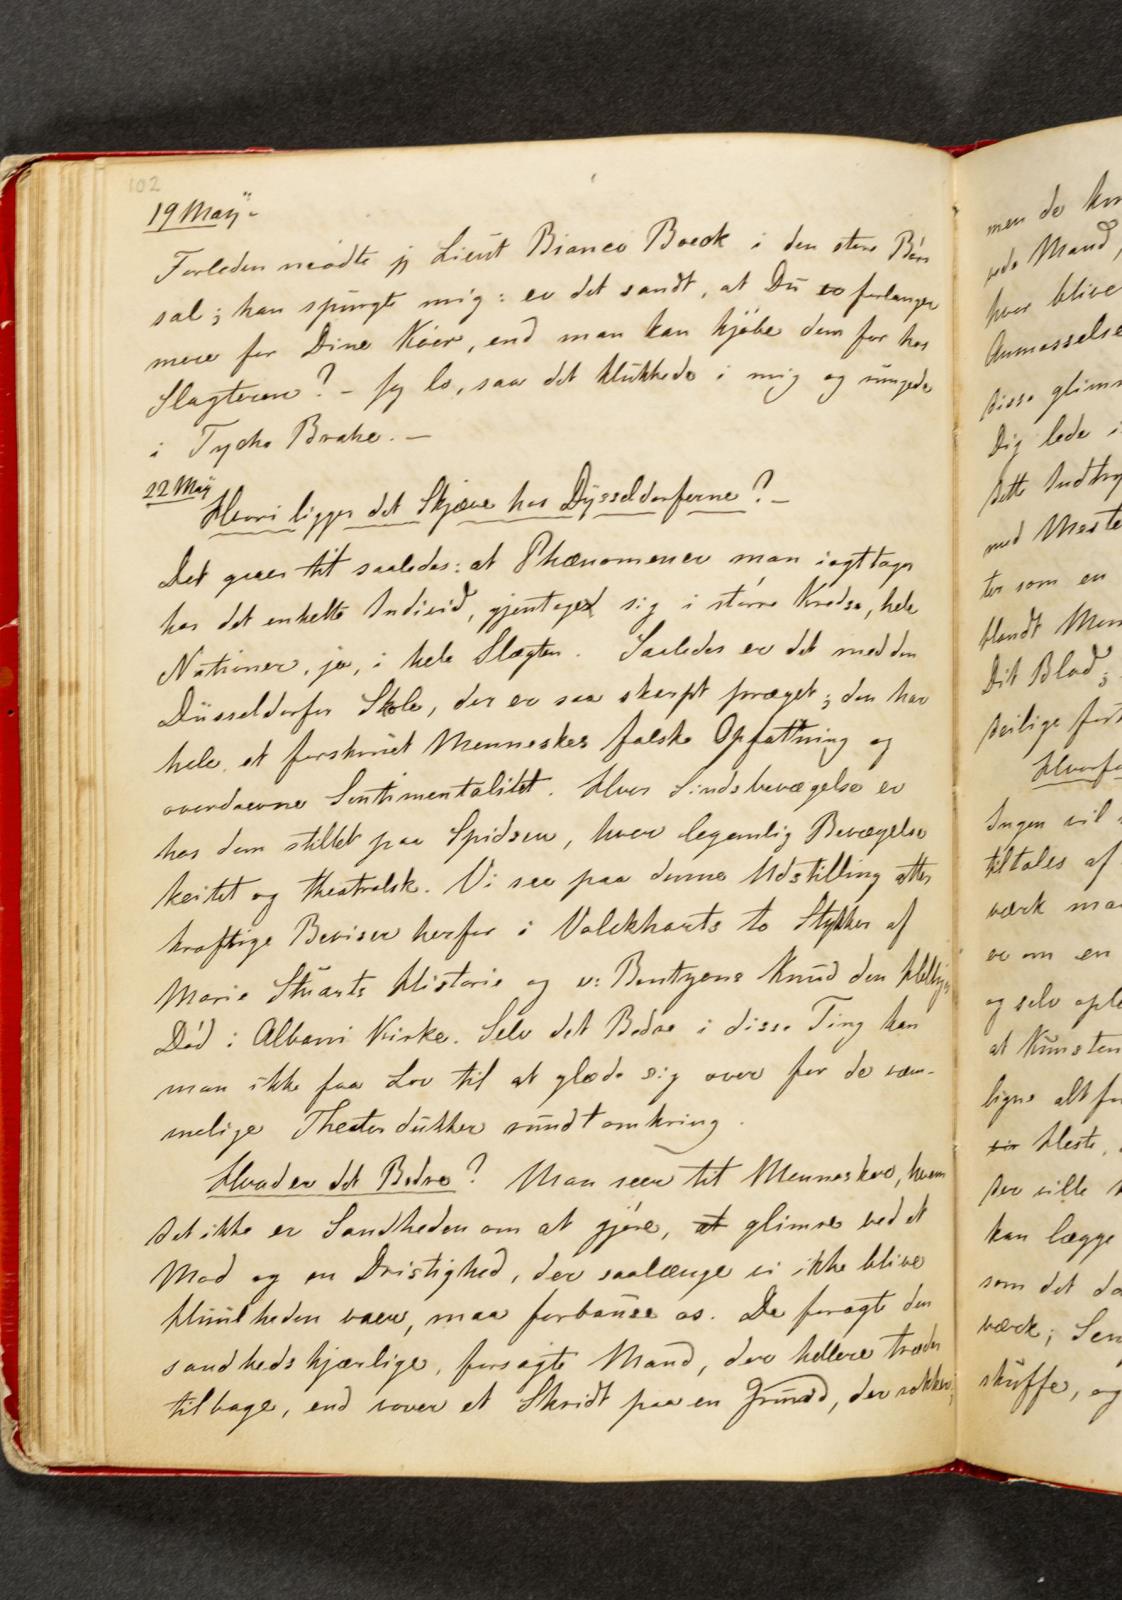 102
19 May
Forleden mødte jeg Lieut Bianco Boeck i den store Børs
sal; han spurgte mig: er det sandt, at Du er forlanger
mere for Dine Køer, end man kan kjöbe dem for hos
Slagteren? – Jeg lo, saa det klukkede i mig og rungede
i Tycho Brahe. —
22 May
Hvori ligger det Skjæve hos Düsseldorferne? –
Det gaaer tit saaledes: at Phænomener man iagttager
hos det enkelte Individ, gjentager sig i större Kredse, hele
Nationer, ja, i hele Slægten. Saaledes er det med den
Düsseldorfer Skole, der er saa skarpt præget; den har
hele et forskruet Menneskes falske Opfattning og
overdrevne Sentimentalitet. Hver Sindsbevægelse er
hos dem stillet paa Spidsen, hver legemlig Bevægelse
keitet og theatralsk. Vi see paa denne Udstilling atter
kraftige Beviser herfor i Volckharts to Stykker af
Marie Stuarts Historie og v: Bentzens Knud den Hellige
Död i Albani Kirke. Selv det Bedre i disse Ting kan
man ikke faa Lov til at glæde sig over for de væm-
melige Theaterdukker rundtomkring.
Hvad er det Bedre? Man seer tit Mennesker, hvem
det ikke er Sandheden om at gjöre, at glimre ved et
Mod og en Dristighed, der saalænge vi ikke blive
Huulheden vaer, maa forbause os. De foragte den
sandhedskjærlige, forsagte Mand, der hellere træder
tilbage, end vover et Skridt paa en Grund, der vakler,
men de
Mand,
hvor blive
Anmasselse
disse
Dig lede i
dette
med
ter som en
blandt
Dit Blod;
deilige
Ingen vil
tiltales af
værk
er om en
og selv
at Kunsten
ligne alt
Heste,
der vilde
kan lægge
som det
værk;
skuffe, og